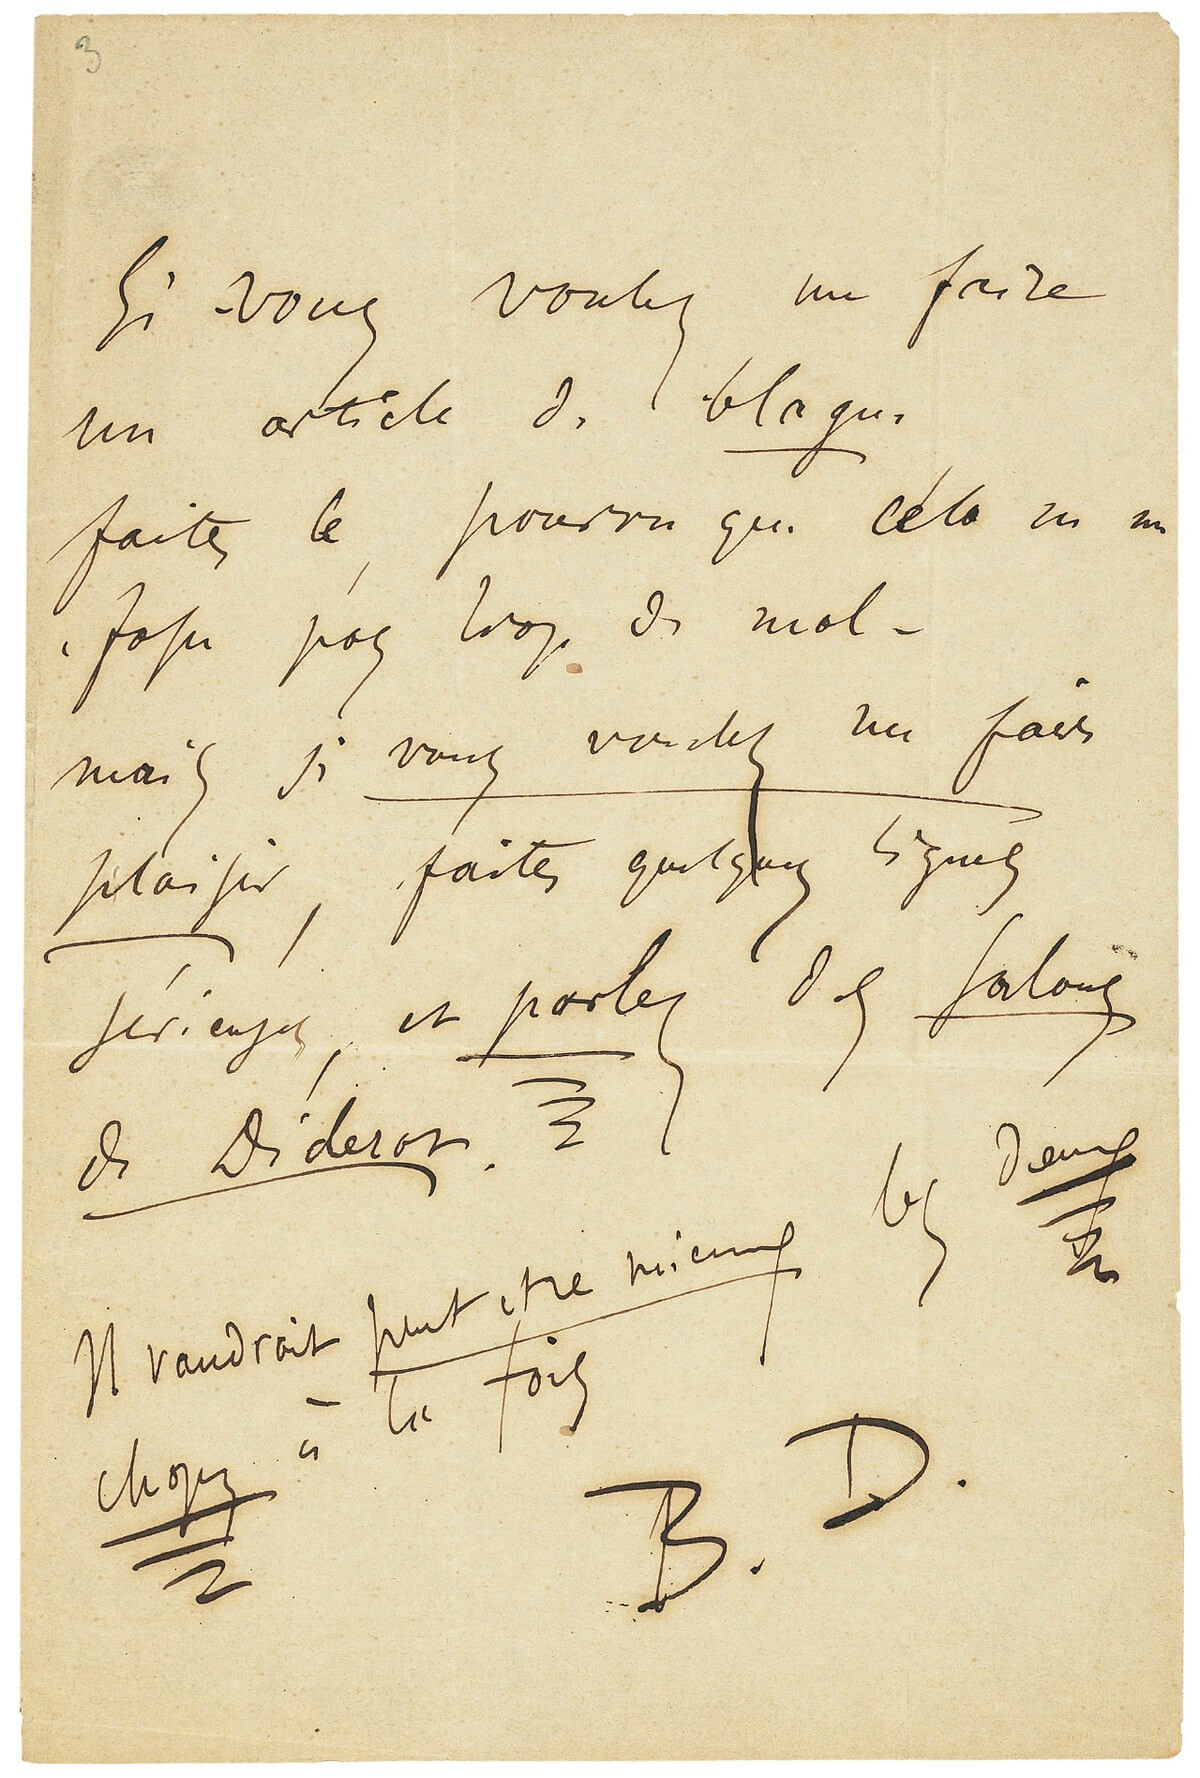 3
Si vous voulez me faire
un article de blague
faites le, pourvu que cela ne me
fasse pas trop de mal -
mais si vous voulez me faire
plaisir, faites quelques lignes
sérieuses, et parlez des Salons
de Diderot.
Il vaudrait peut être mieux les deux
choses à la fois
B. D.